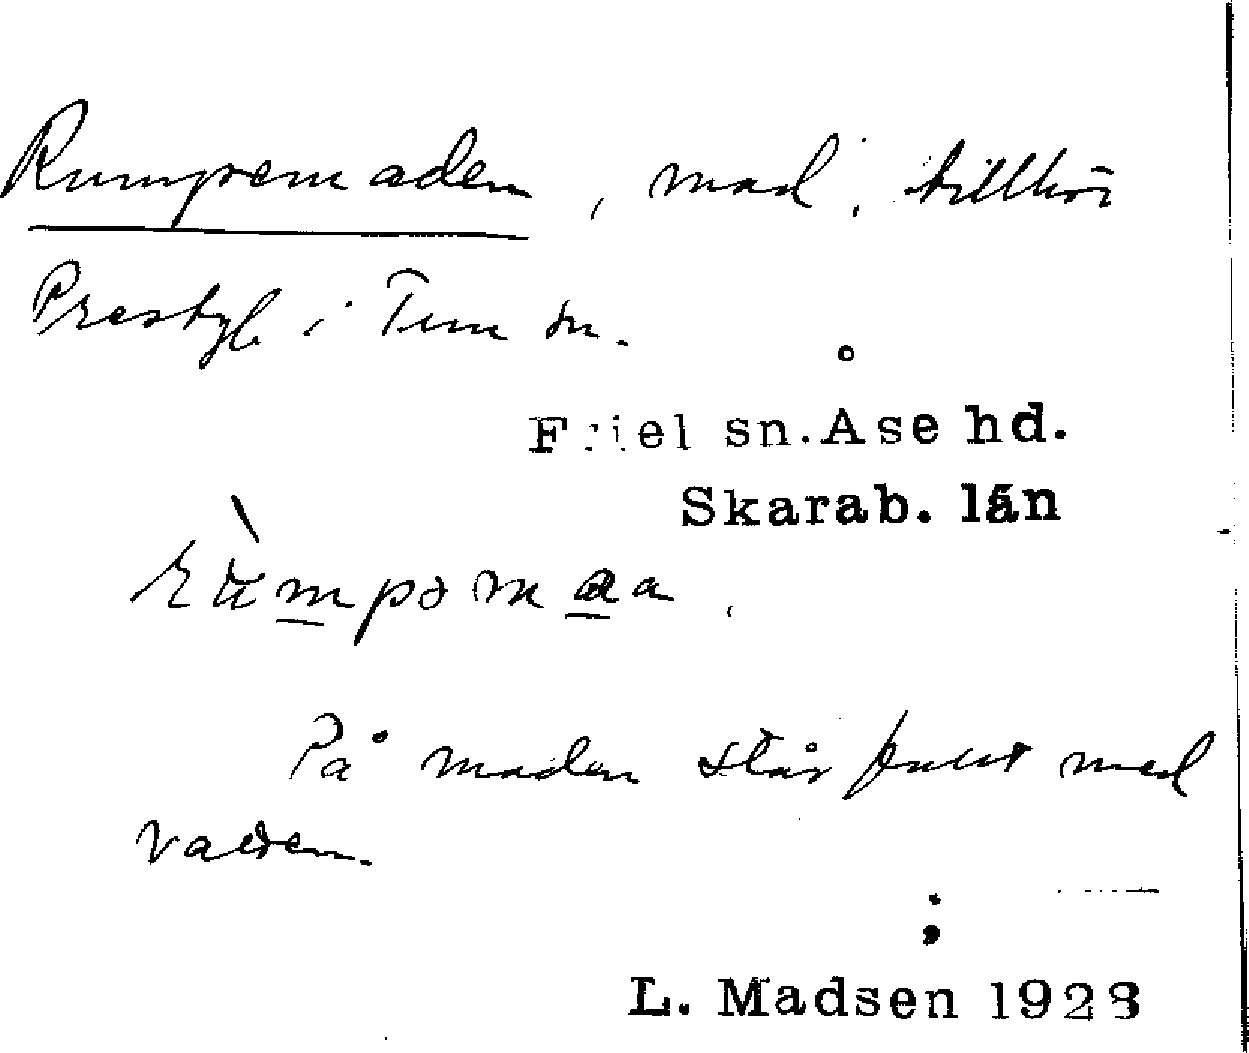 Rumpemaden, mad, tillhör
Prestgb i Tun sn.
Friel sn. Åse hd.
Skarab. län
På maden står fullt med
vatten.
L. Madsen 1928